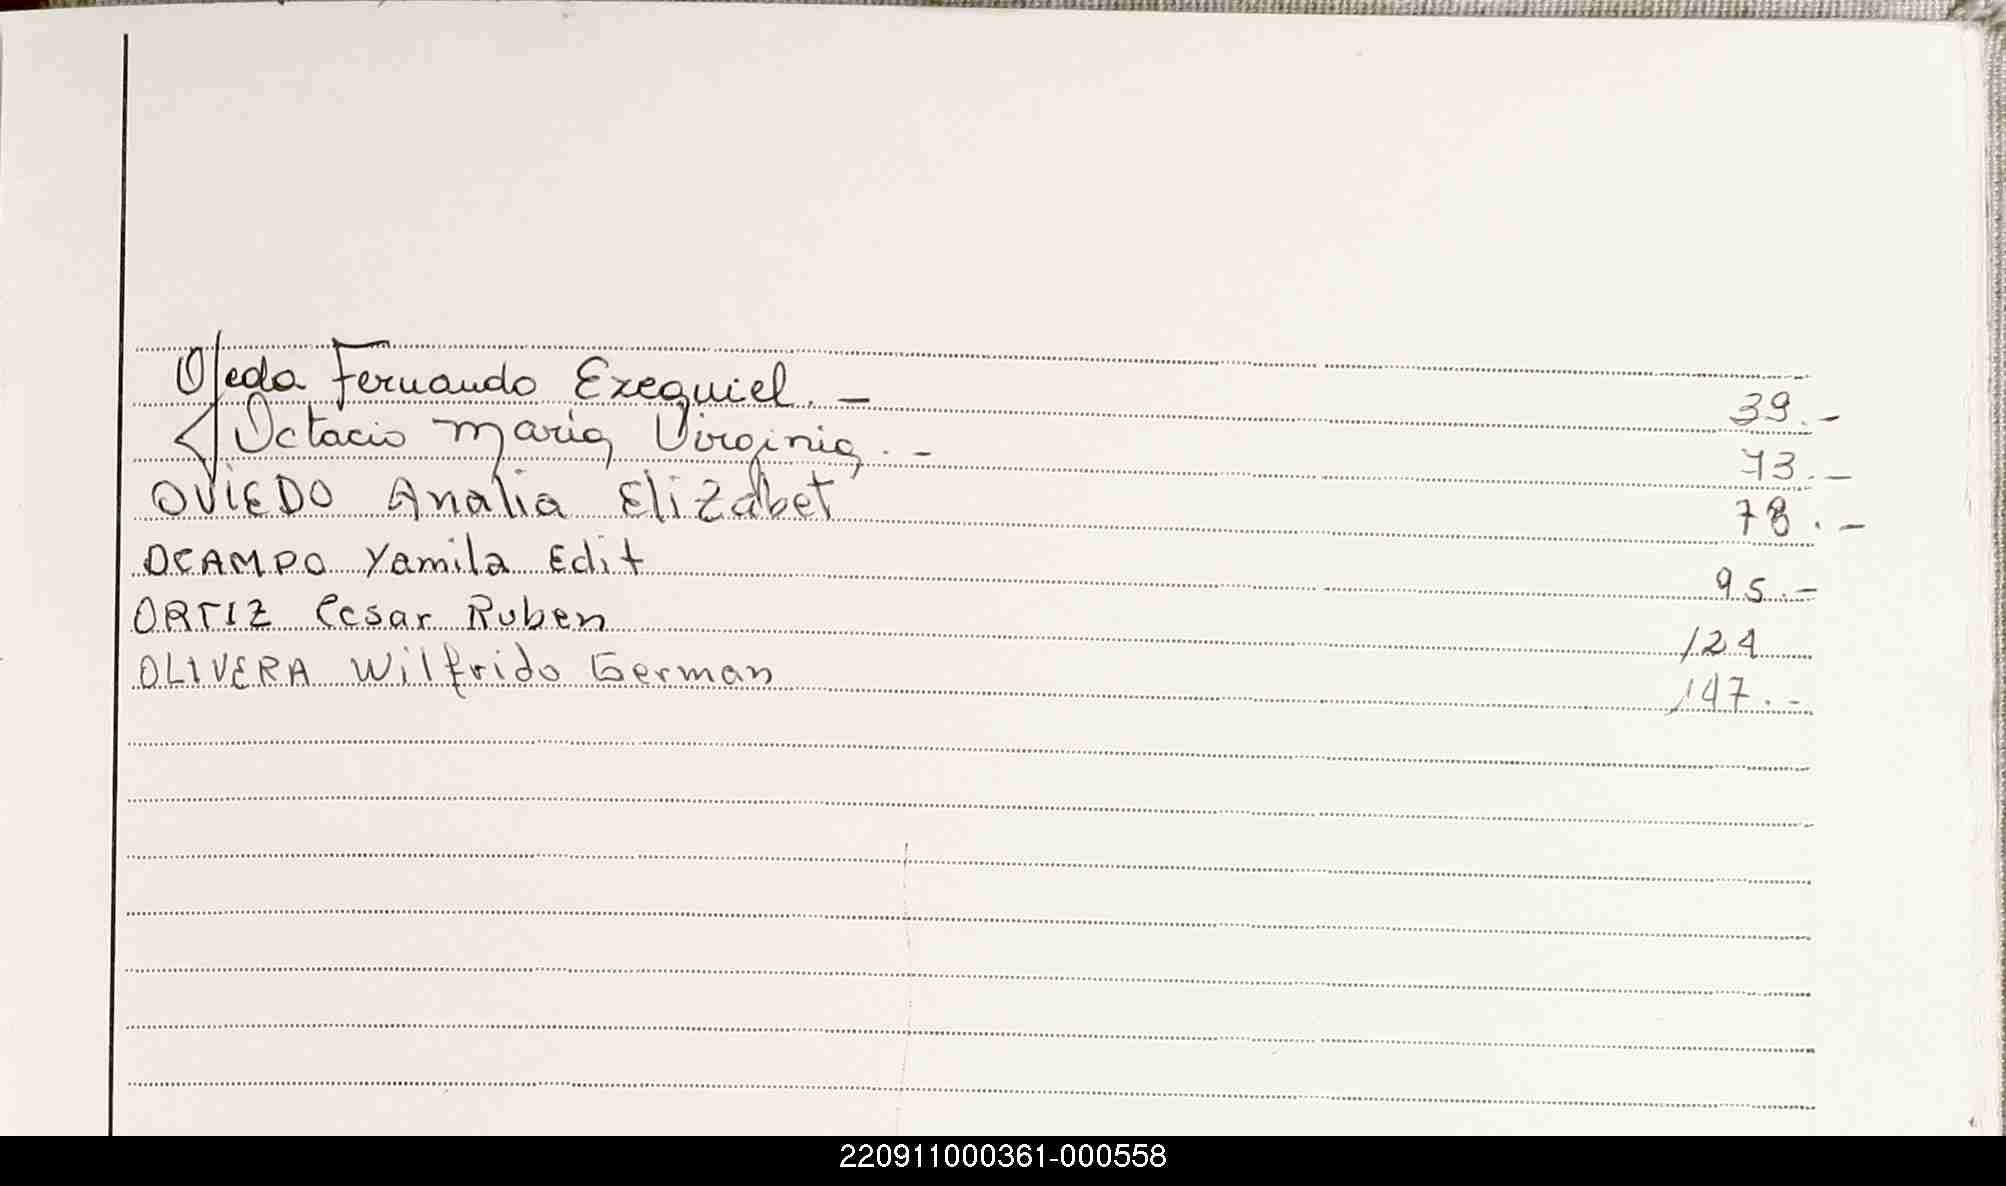 Ojeda Fernando Ezequiel. - 39.-
Octacio Maria Virginia. - 73.-
OVIEDO Analia Elizabet 78.-
OCAMPO Yamila Edit 95.-
ORTIZ Cesar Ruben 124
OLIVERA Wilfrido German 147.-
220911000361-000558